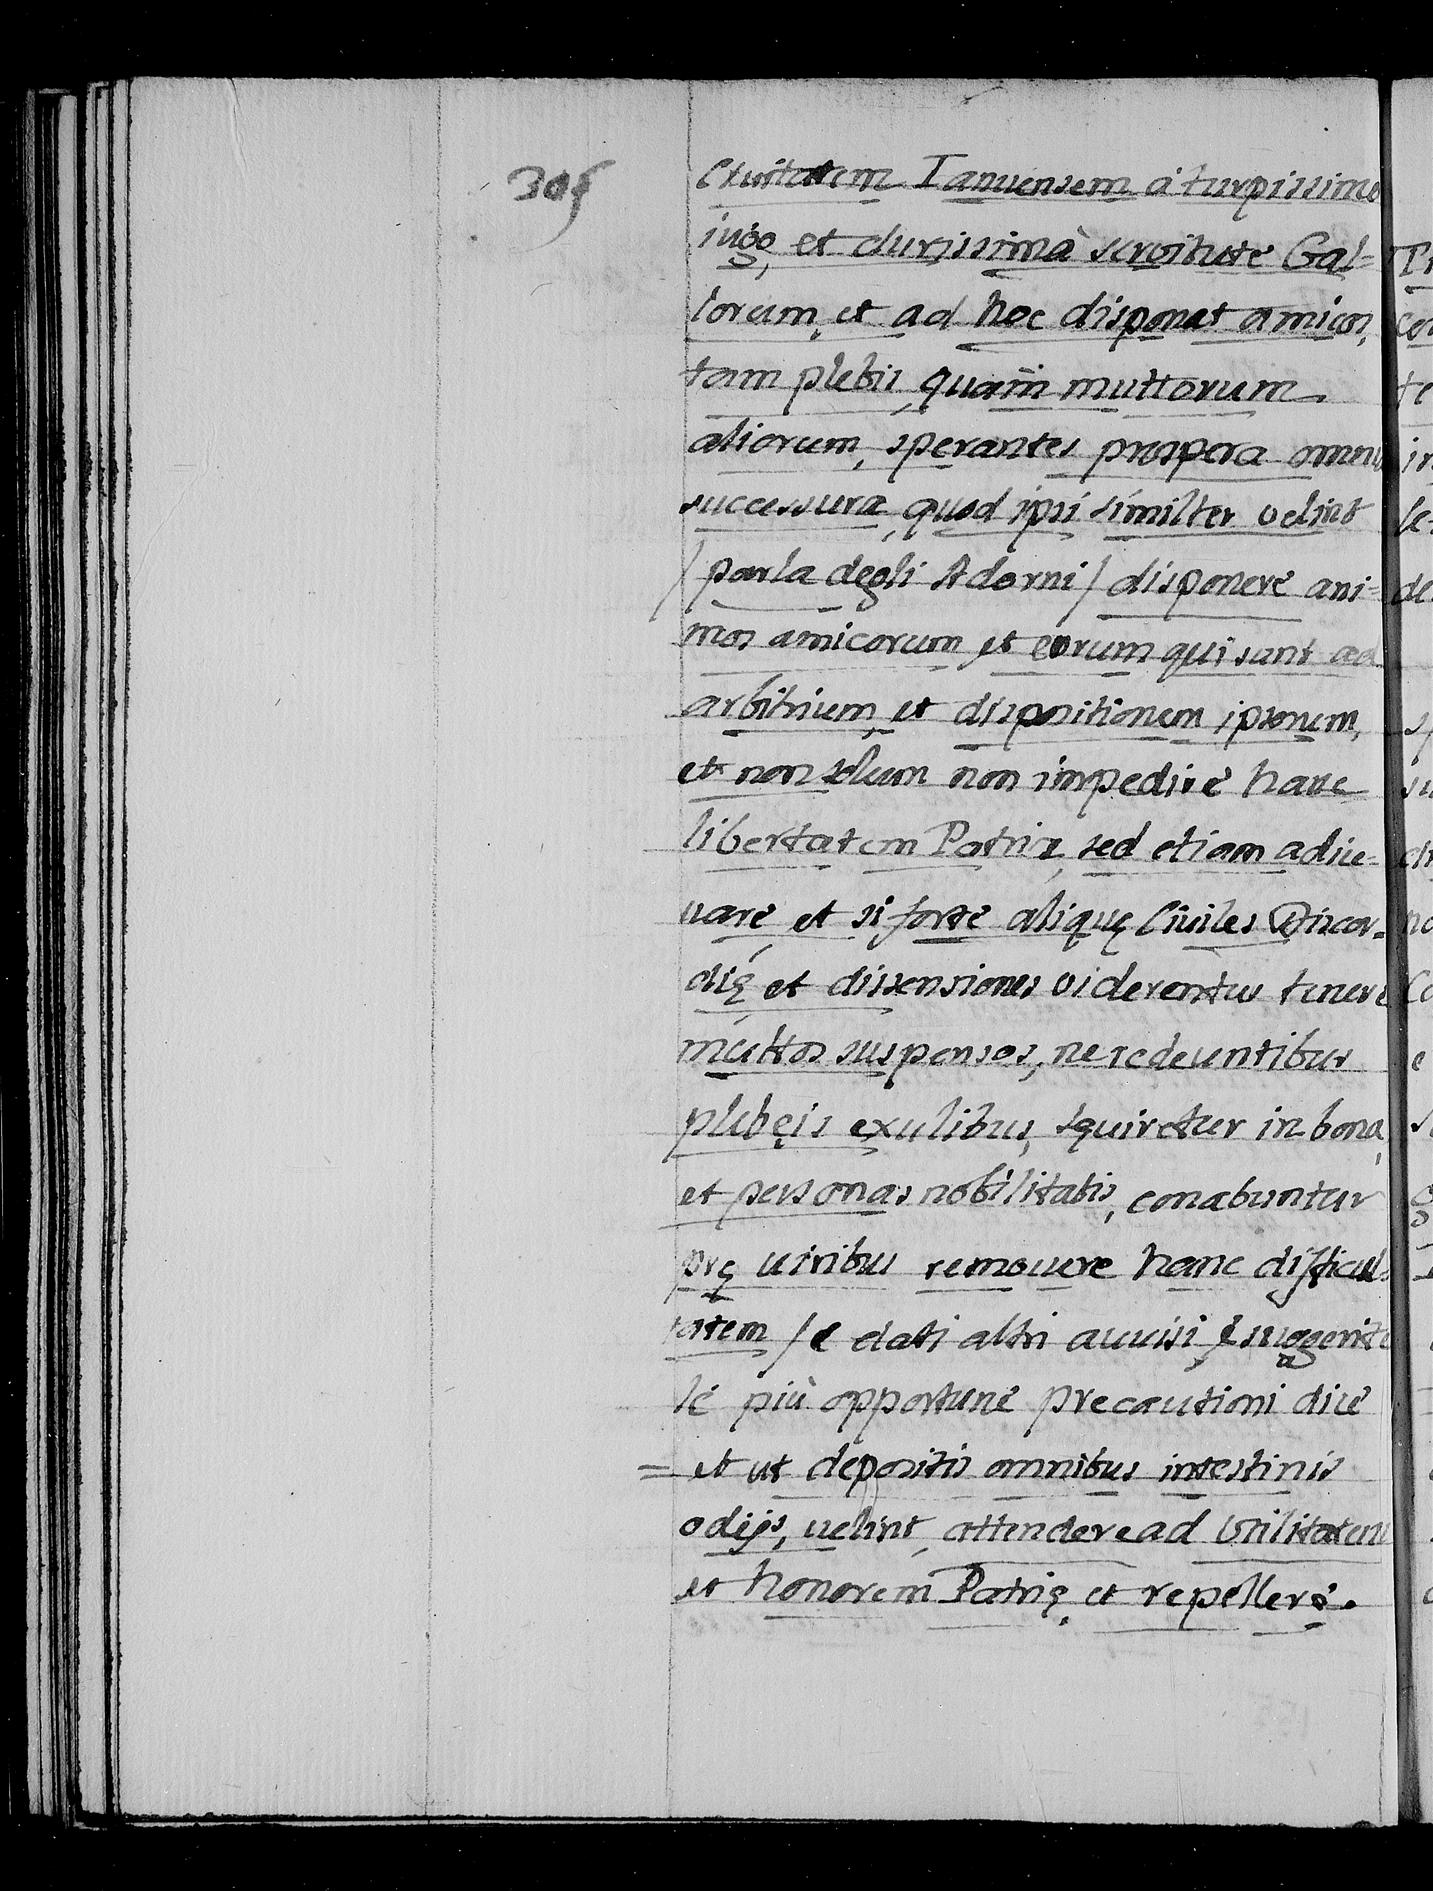 305
Ciuitatem Ianuensem à turpissimo
iugo, et durissimà seruitute Gal=
lorum, et ad hoc disponet amicos,
tam plebis, quam multorum
aliorum, sperantes prospera omnia
successura, quod ipsi similter uelint
/ parla degli Adorni / disponere ani=
mos amicorum et eorum qui sunt ad
arbitrium, et dispositionem ipsorum,
et non solum non impedire hanc
libertatem Patriæ, sed etiam adiu=
uare et si forte aliquę Ciuiles Discor=
dię et dissensiones uiderentur tenere
multos suspensos, ne redeuntibus
plebęis exulibus, sęuiretur in bona,
et personas nobilitatis, conabuntur
prę uiribus remouere hanc difficul=
tatem / e dati altri auuisi, e suggerite
le più opportune precautioni dice
= et ut depositis omnibus intestinis
odijs, uelint, attendere ad Vtilitatem
et honorem Patrię, et repellere.